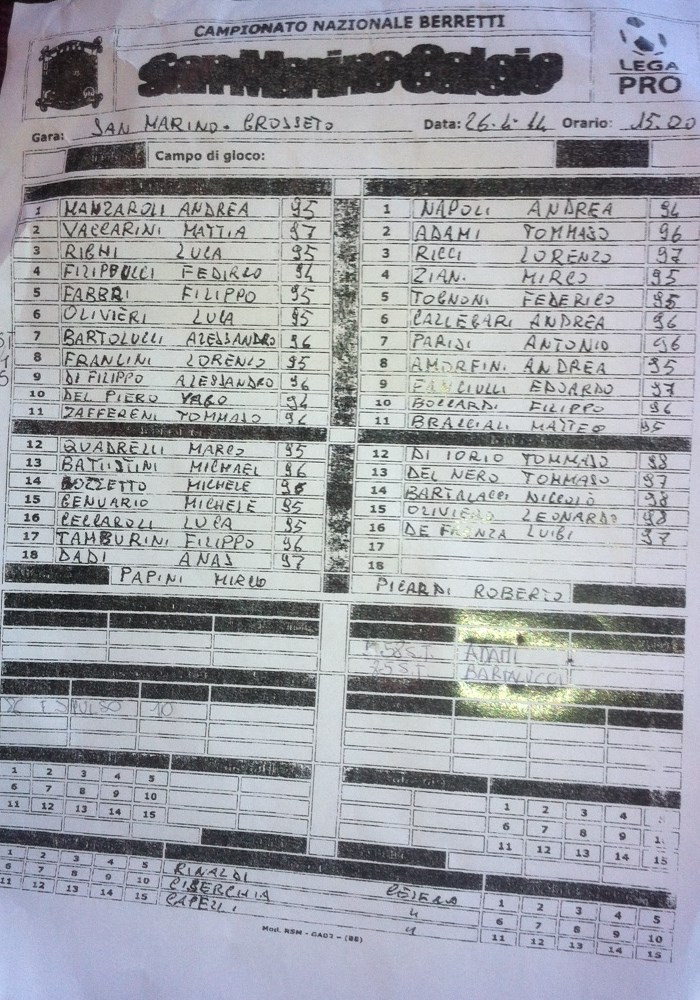 CAMPIONATO NAZIONALE BERRETTI
San Marino Calcio
LEGA
PRO
Gara: SAN MARINO - GROSSETO Data: 26.4.14 Orario: 15.00
Campo di gioco:
1 MANZAROLI ANDREA 95
2 VACCARINI MATTIA 97
3 RIGHI LUCA 95
4 FILIPPUCCI FEDIRCO 94
5 FABBRI FILIPPO 95
6 OLIVIERI LUCA 95
7 BARTOLUCCI ALESSANDRO 96
8 FRANCINI LORENZO 95
9 DI FILIPPO ALESSANDRO 96
10 DEL PIERO 94
11 ZAFFERENI TOMMASO 94
12 QUADRELLI MARCO 95
13 BATTISTINI MICHAEL 96
14 BOZZETTO MICHELE 96
15 GENUARIO MICHELE 95
16 CECCAROLI LUCA 95
17 TAMBURINI FILIPPO 96
18 DADI ANAS 97
PAPINI MIRCO
1 NAPOLI ANDREA 94
2 ADAMI TOMMASO 96
3 RICCI LORENZO 97
4 ZIAN. MIRCO 95
5 TOGNONI FEDERICO 95
6 CALLEGARI ANDREA 96
7 PARISI ANTONIO 96
8 AMORFINI ANDREA 95
9 FANCIULLI EDOARDO 97
10 BOCCARDI FILIPPO 96
11 BRACCIALI MATTEO 95
12 DI IORIO TOMMASO 98
13 DEL NERO TOMMASO 97
14 BARTALACCI NICCOLÒ 98
15 OLIVIERO LEONARDO 98
16 DE FRONZA LUIGI 97
17
18
PICARDI ROBERTO
ADAMI
25 S.T. BARTALUCCI
ESPULSO 10
1 2 3 4 5
6 7 8 9 10
11 12 13 14 15
1 2 3 4
6 7 8 9
11 12 13 14 15
1 2 3 4 5
6 7 8 9 10
11 12 13 14 15
RINALDI CESENA
CISERCHIA "
CAPELLI "
1 2 3 4 5
6 7 8 9 10
11 12 13 14 15
Mod. RSM - GA02 - (05)